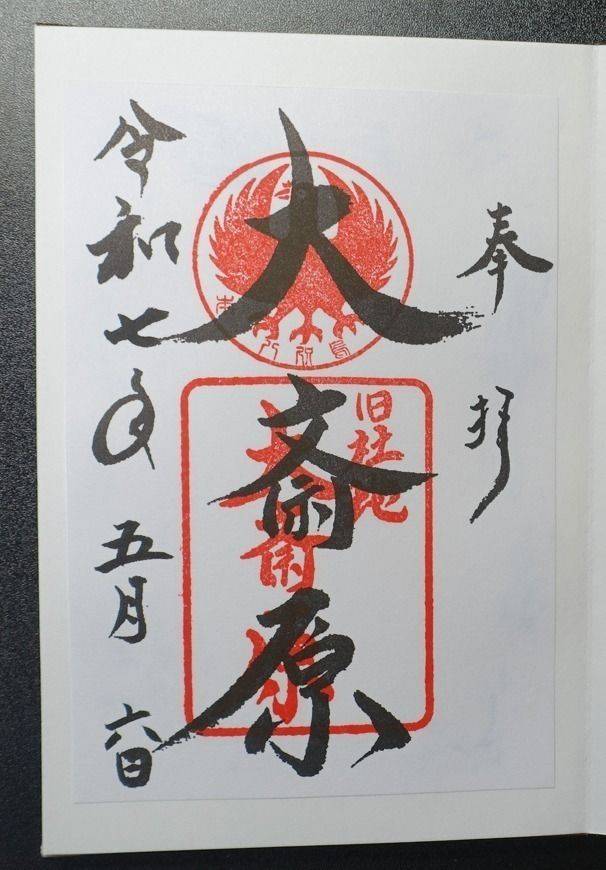 奉拝
大斎原
旧社地
大斎原
令和七年五月六日